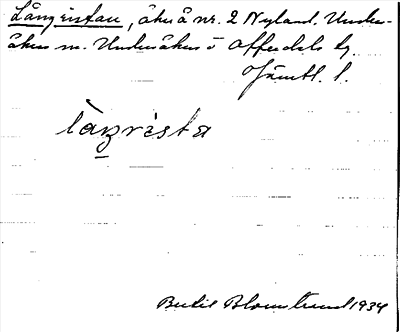 Långristan, åker å nr. 2 Nyland. Under-
åkers sn. Undersåkers o Offerdals tg.
Jämtl. l.
làŋrìsta
Bertil Blomstrand 1934